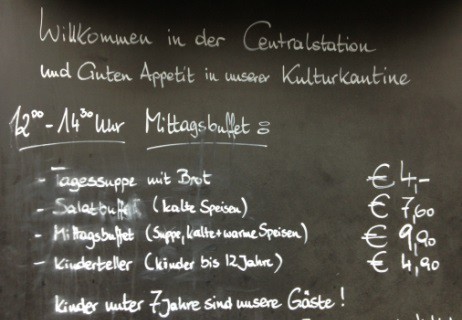 Willkommen in der Centralstation
und Guten Appetit in unserer Kulturkantine
12⁰⁰-14³⁰ Uhr Mittagsbuffet:
- Tagessuppe mit Brot € 4,-
- Salatbuffet (kalte Speisen) € 7,60
- Mittagsbuffet (Suppe, kalte + warme Speisen) € 9,90
- Kinderteller (Kinder bis 12 Jahre) € 4,90
Kinder unter 7 Jahre sind unsere Gäste!